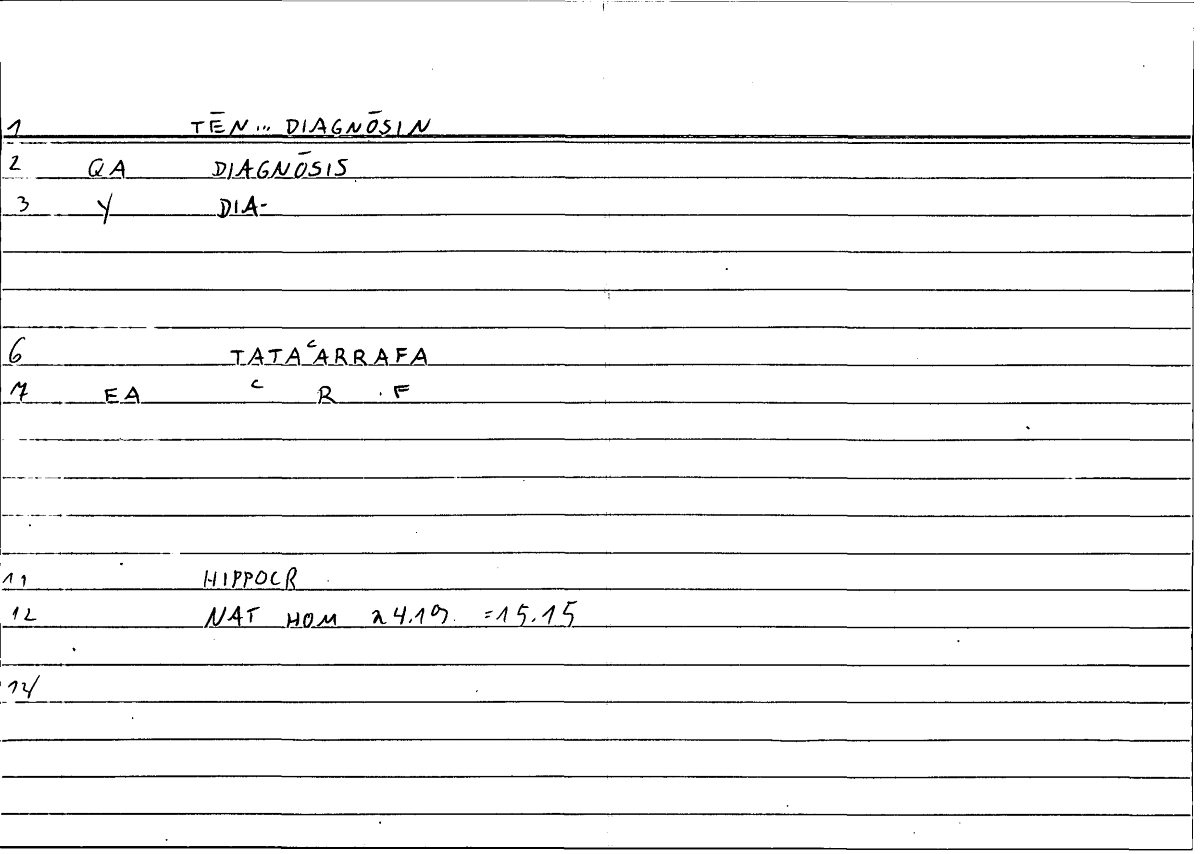 1 TĒN... DIAGNŌSIN
2 QA DIAGNŌSIS
3 Y DIA-
6 TATAᶜARRAFA
7 EA ᶜ R F
11 HIPPOCR
12 NAT HOM 24.19. =15.15
14